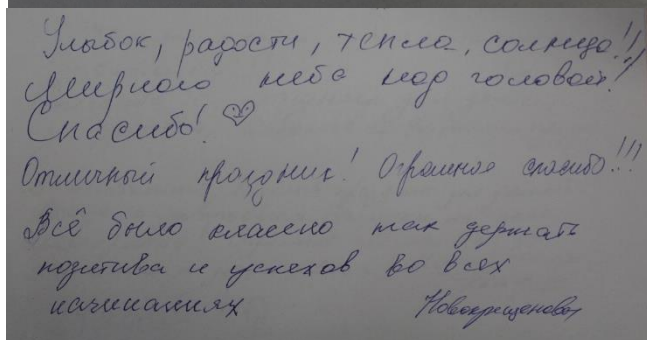 Улыбок, радости, тепла, солнца!!
Мирного неба над головой!!
Спасибо!
Отличный праздник! Огромное спасибо!!!
Всё было классно так держать
позитива и успехов во всех
начинаниях Новокрещенова